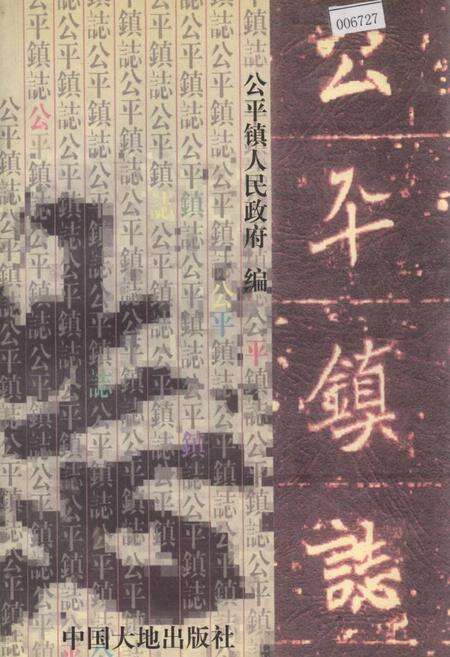 006727
公平鎮誌
公平镇人民政府 编
中国大地出版社